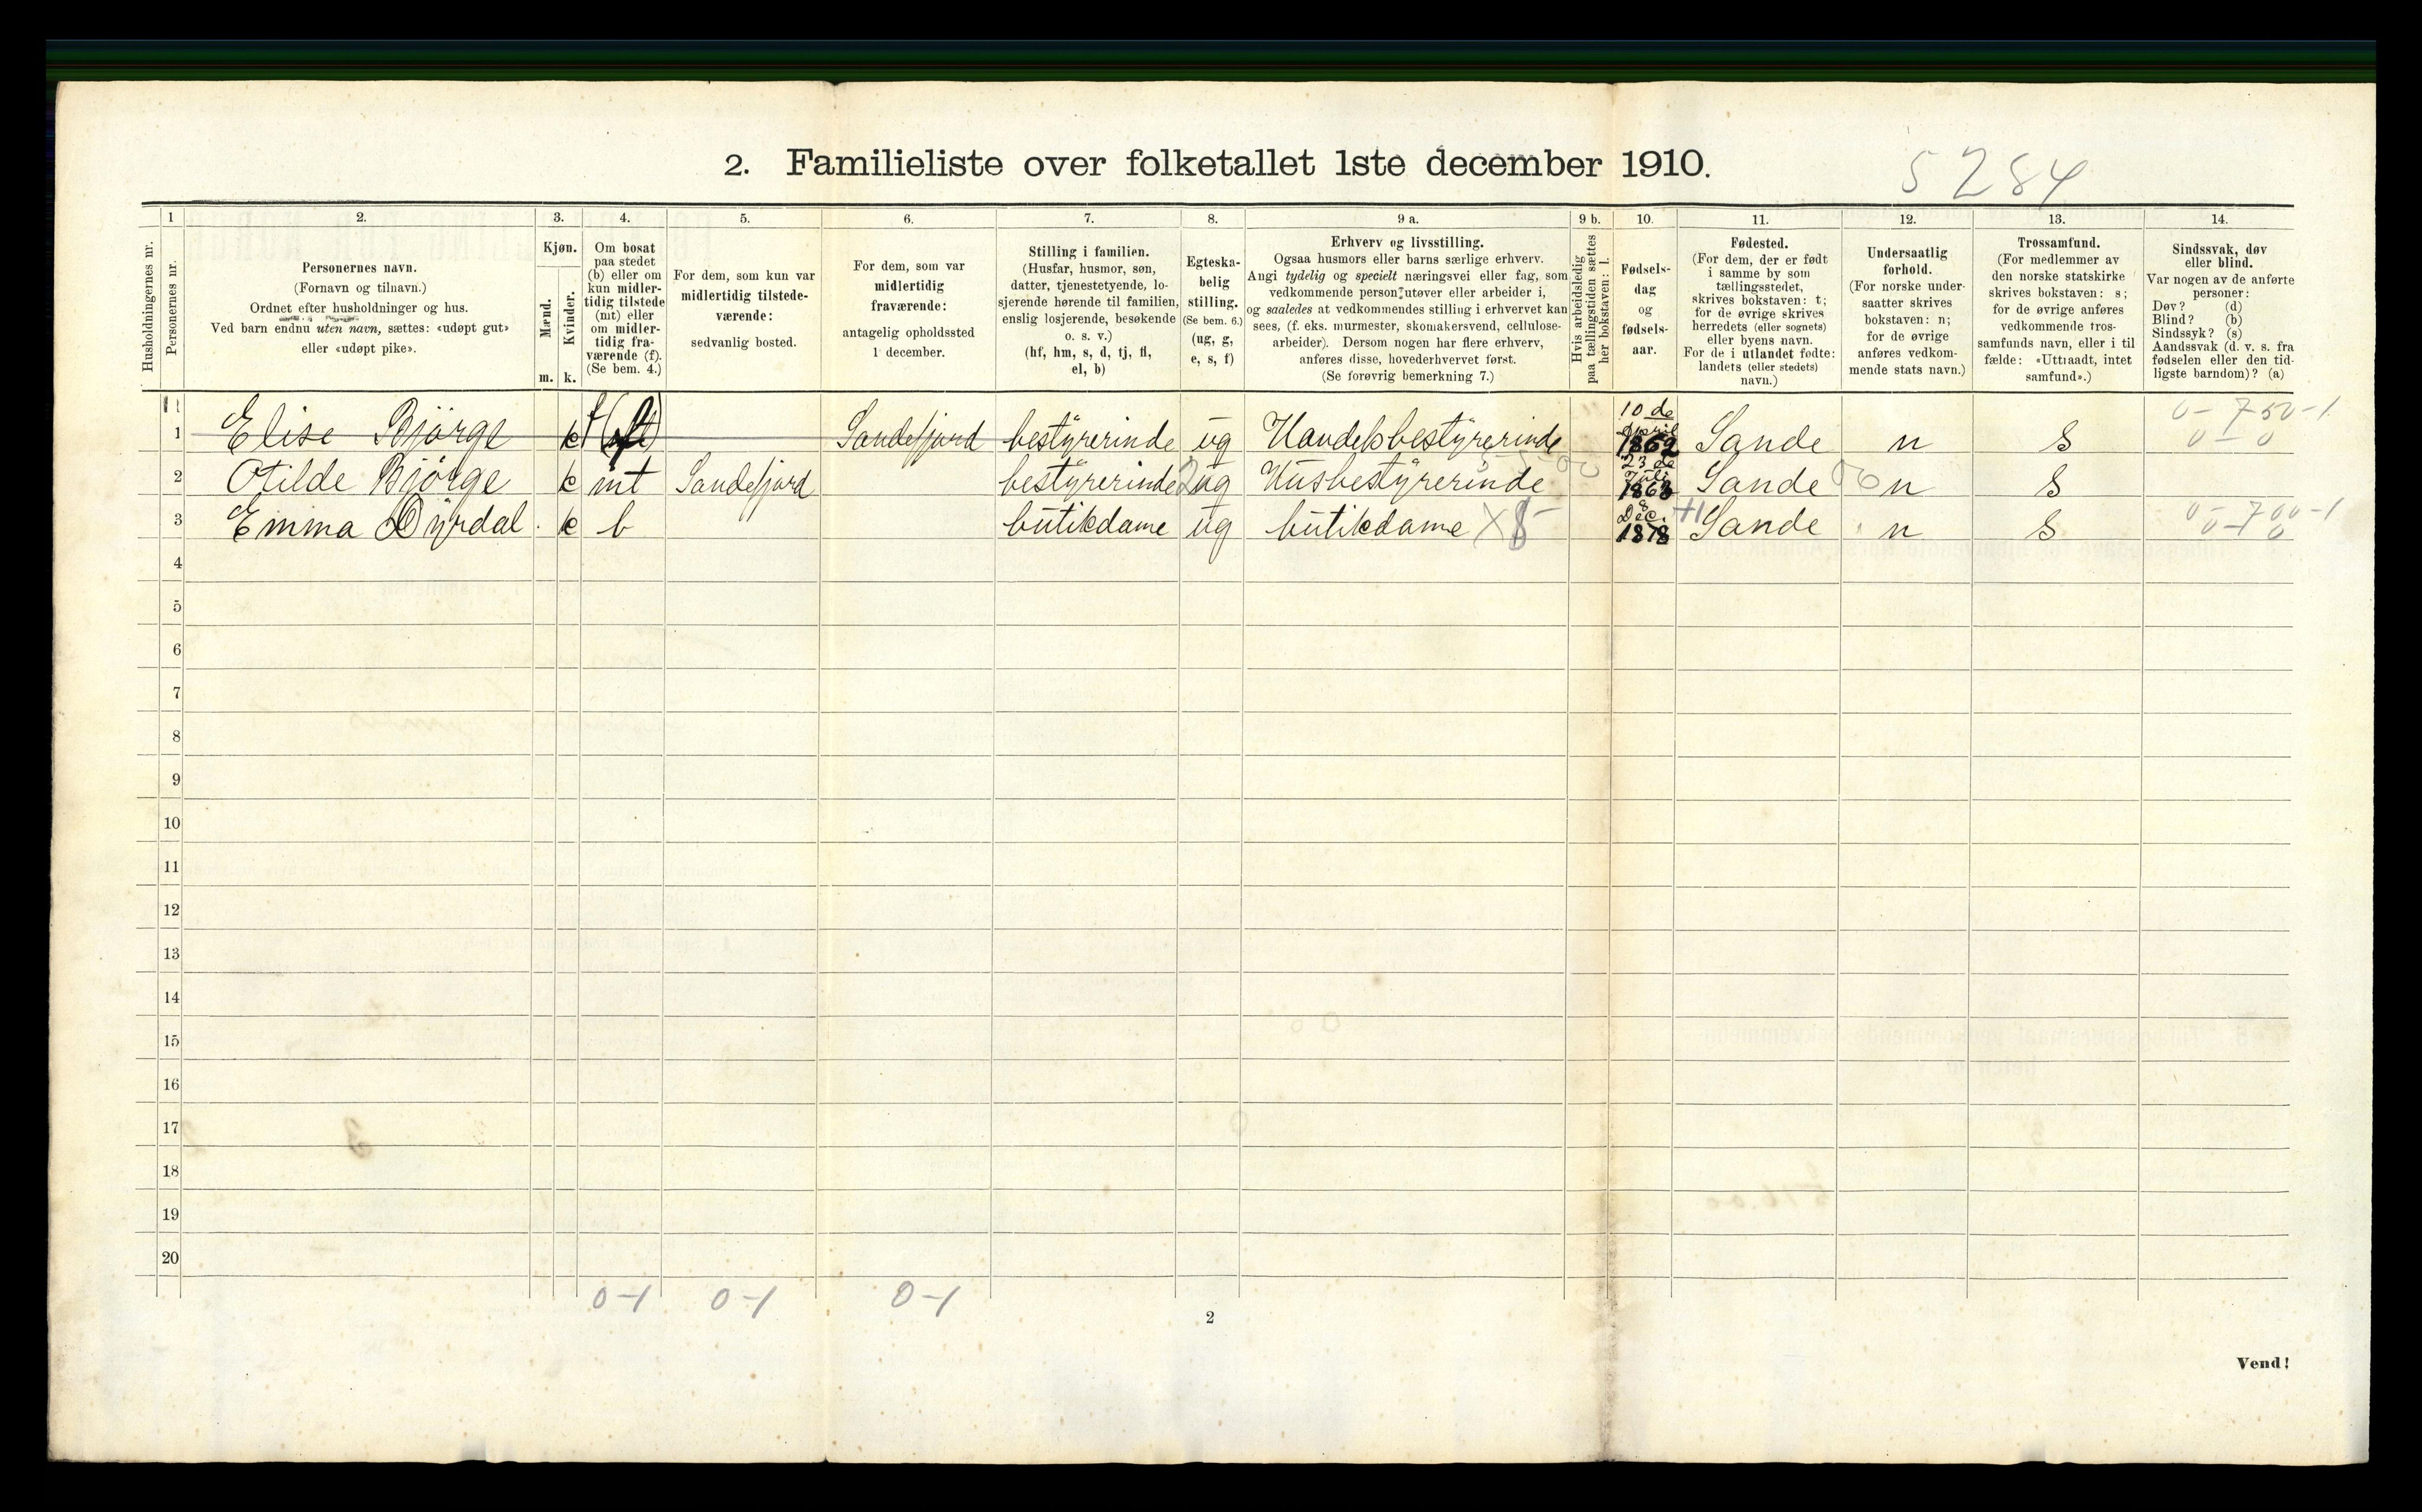 2. Familieliste over folketallet 1ste december 1910.
5284
1 2. 3. 4. 5. 6. 7. 8. 9 a. 9 b. 10. 11. 12. 13. 14.
Husholdningernes nr.
Personernes nr.
Personernes navn.
(Fornavn og tilnavn.)
Ordnet efter husholdninger og hus.
Ved barn endnu uten navn, sættes: «udøpt gut»
eller «udøpt pike».
Kjøn.
Mænd.
Kvinder.
m. k.
Om bosat
paa stedet
(b) eller om
kun midler-
tidig tilstede
(mt) eller
om midler-
tidig fra-
værende (f).
(Se bem. 4.)
For dem, som kun var
midlertidig tilstede-
værende:
sedvanlig bosted.
For dem, som var
midlertidig
fraværende:
antagelig opholdssted
1 december.
Stilling i familien.
(Husfar, husmor, søn,
datter, tjenestetyende, lo-
sjerende hørende til familien,
enslig losjerende, besøkende
o. s. v.)
(hf, hm, s, d, tj, fl,
el, b)
Egteska-
belig
stilling.
(Se bem. 6.)
(ug, g,
e, s, f)
Erhverv og livsstilling.
Ogsaa husmors eller barns særlige erhverv.
Angi tydelig og specielt næringsvei eller fag, som
vedkommende person utøver eller arbeider i,
og saaledes at vedkommendes stilling i erhvervet kan
sees, (f. eks. murmester, skomakersvend, cellulose-
arbeider). Dersom nogen har flere erhverv,
anføres disse, hovederhvervet først.
(Se forøvrig bemerkning 7.)
Hvis arbeidsledig
paa tællingstiden sættes
her bokstaven: l.
Fødsels-
dag
og
fødsels-
aar.
Fødested.
(For dem, der er født
i samme by som
tællingsstedet,
skrives bokstaven: t;
for de øvrige skrives
herredets (eller sognets)
eller byens navn.
For de i utlandet fødte:
landets (eller stedets)
navn.)
Undersaatlig
forhold.
(For norske under-
saatter skrives
bokstaven: n;
for de øvrige
anføres vedkom-
mende stats navn.)
Trossamfund.
(For medlemmer av
den norske statskirke
skrives bokstaven: s;
for de øvrige anføres
vedkommende tros-
samfunds navn, eller i til
fælde: «Uttraadt, intet
samfund».)
Sindssvak, døv
eller blind.
Var nogen av de anførte
personer:
Døv? (d)
Blind? (b)
Sindssyk? (s)
Aandssvak (d. v. s. fra
fødselen eller den tid-
ligste barndom)? (a)
1 Elise Bjørge k f Sandefjord bestyrerinde ug Handelsbestyrerinde 10 de April 1862 Sande n s 0-750-1
0-0
2 Otilde Bjørge k mt Sandefjord bestyrerinde ug Husbestyrerinde 23 de Juli 1863 Sande n s
3 Emma Dyrdal k b butikdame ug butikdame 8 Dec. 1878 Sande n s 0-700-1
0-0
4
5
6
7
8
9
10
11
12
13
14
15
16
17
18
19
20
0-1 0-1 0-1
2
Vend!